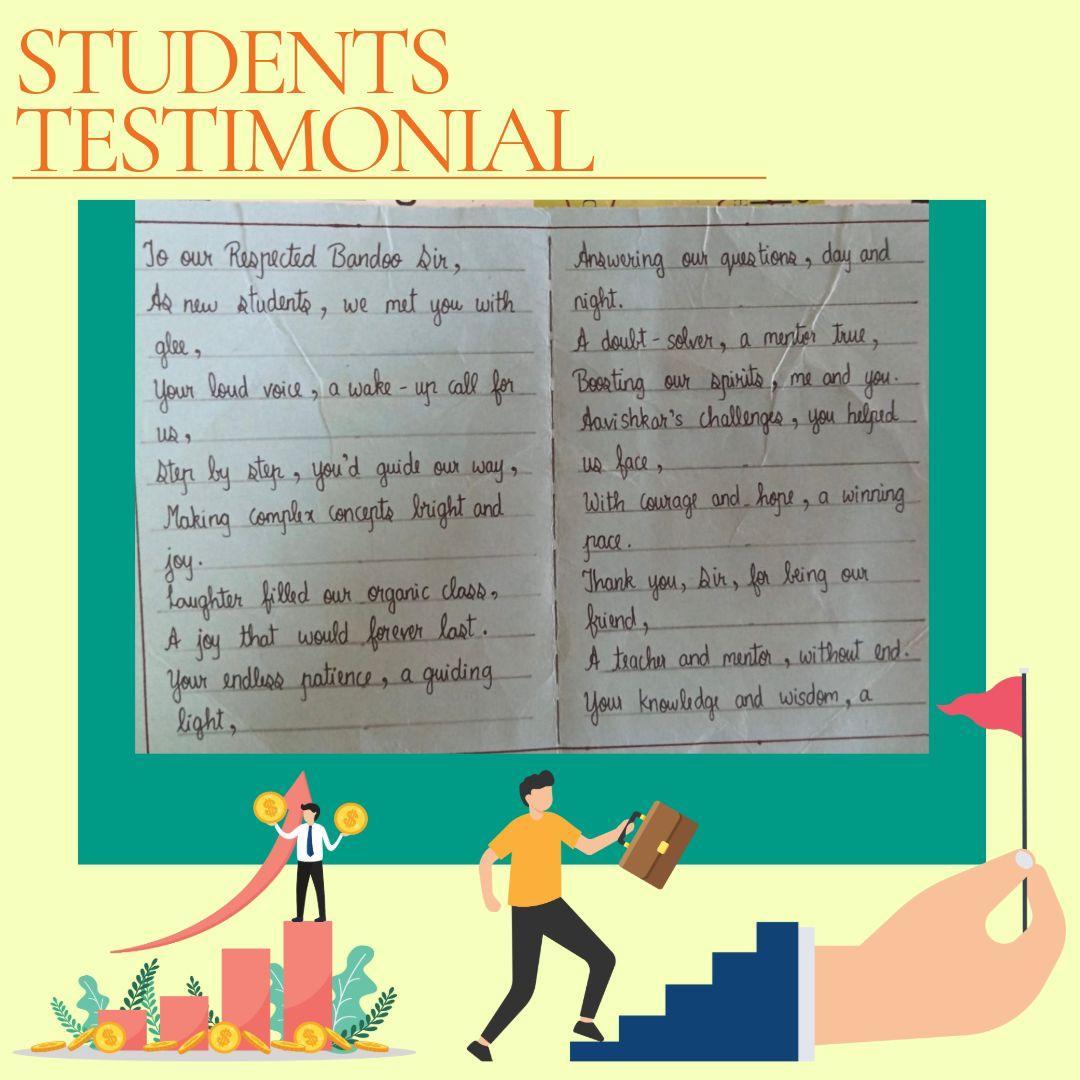 STUDENTS
TESTIMONIAL
To our Respected Bandoo Sir,
As new students, we met you with
glee,
Your loud voice, a wake-up call for
us,
Step by step, you'd guide our way,
Making complex concepts bright and
joy.
Laughter filled our organic class,
A joy that would forever last.
Your endless patience, a guiding
light,
Answering our questions, day and
night.
A doubt-solver, a mentor true,
Boosting our spirits, me and you.
Aavishkar's challenges, you helped
us face,
With courage and hope, a winning
pace.
Thank you, Sir, for being our
friend,
A teacher and mentor, without end.
Your knowledge and wisdom, a